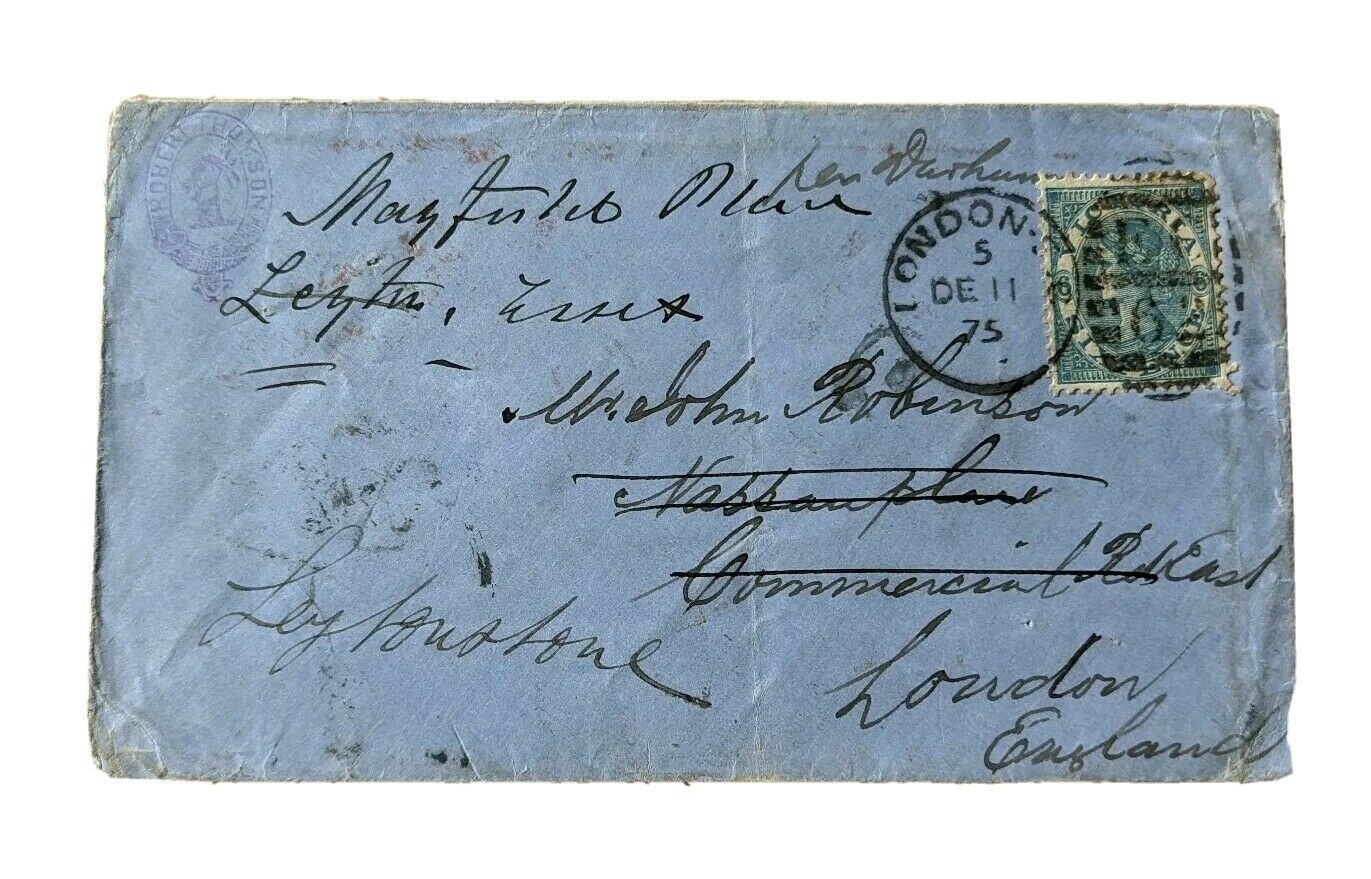 ROBERT
per Durham
Mayfield Place
Leyton, Essex
LONDON
5
DE 11
75
6 6
Mr. John Robinson
Nassau place
Commercial Rd East
London
England
Leytonstone